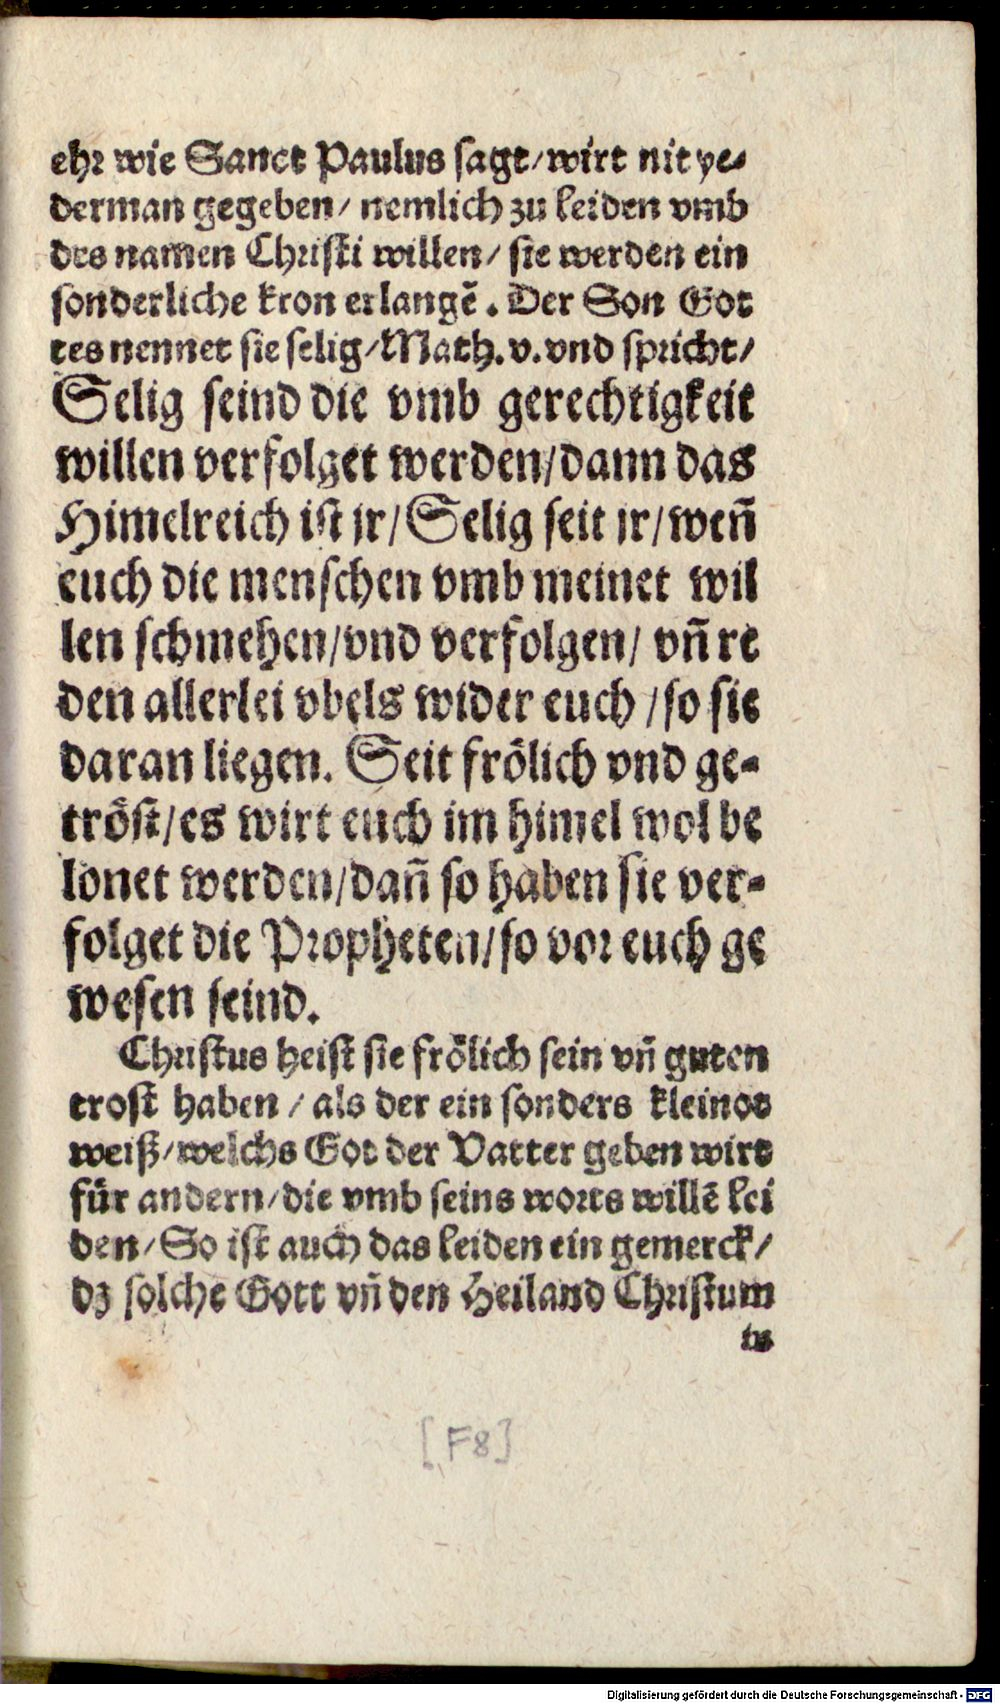 ehr wie Sanct Paulus sagt/wirt nit ye-
derman gegeben/ nemlich zu leiden vmb
des namen Christi willen/ sie werden ein
sonderliche kron erlangē. Der Son Got
tes nennet sie selig/Math.v.vnd spricht/
Selig seind die vmb gerechtigkeit
willen verfolget werden/dann das
Himelreich ist jr/Selig seit jr/weñ
euch die menschen vmb meinet wil
len schmehen/vnd verfolgen/ vñ re
den allerlei vbels wider euch/so sie
daran liegen. Seit frölich vnd ge-
tröst/es wirt euch im himel wol be
lonet werden/dañ so haben sie ver-
folget die Propheten/so vor euch ge
wesen seind.
Christus heist sie frölich sein vñ guten
trost haben/ als der ein sonders kleinot
weiß/welchs Got der Vatter geben wirt
für andern/die vmb seins worts willē lei
den/So ist auch das leiden ein gemerck/
dz solche Gott vñ den Heiland Christum
[F8]
Digitalisierung gefördert durch die Deutsche Forschungsgemeinschaft - DFG